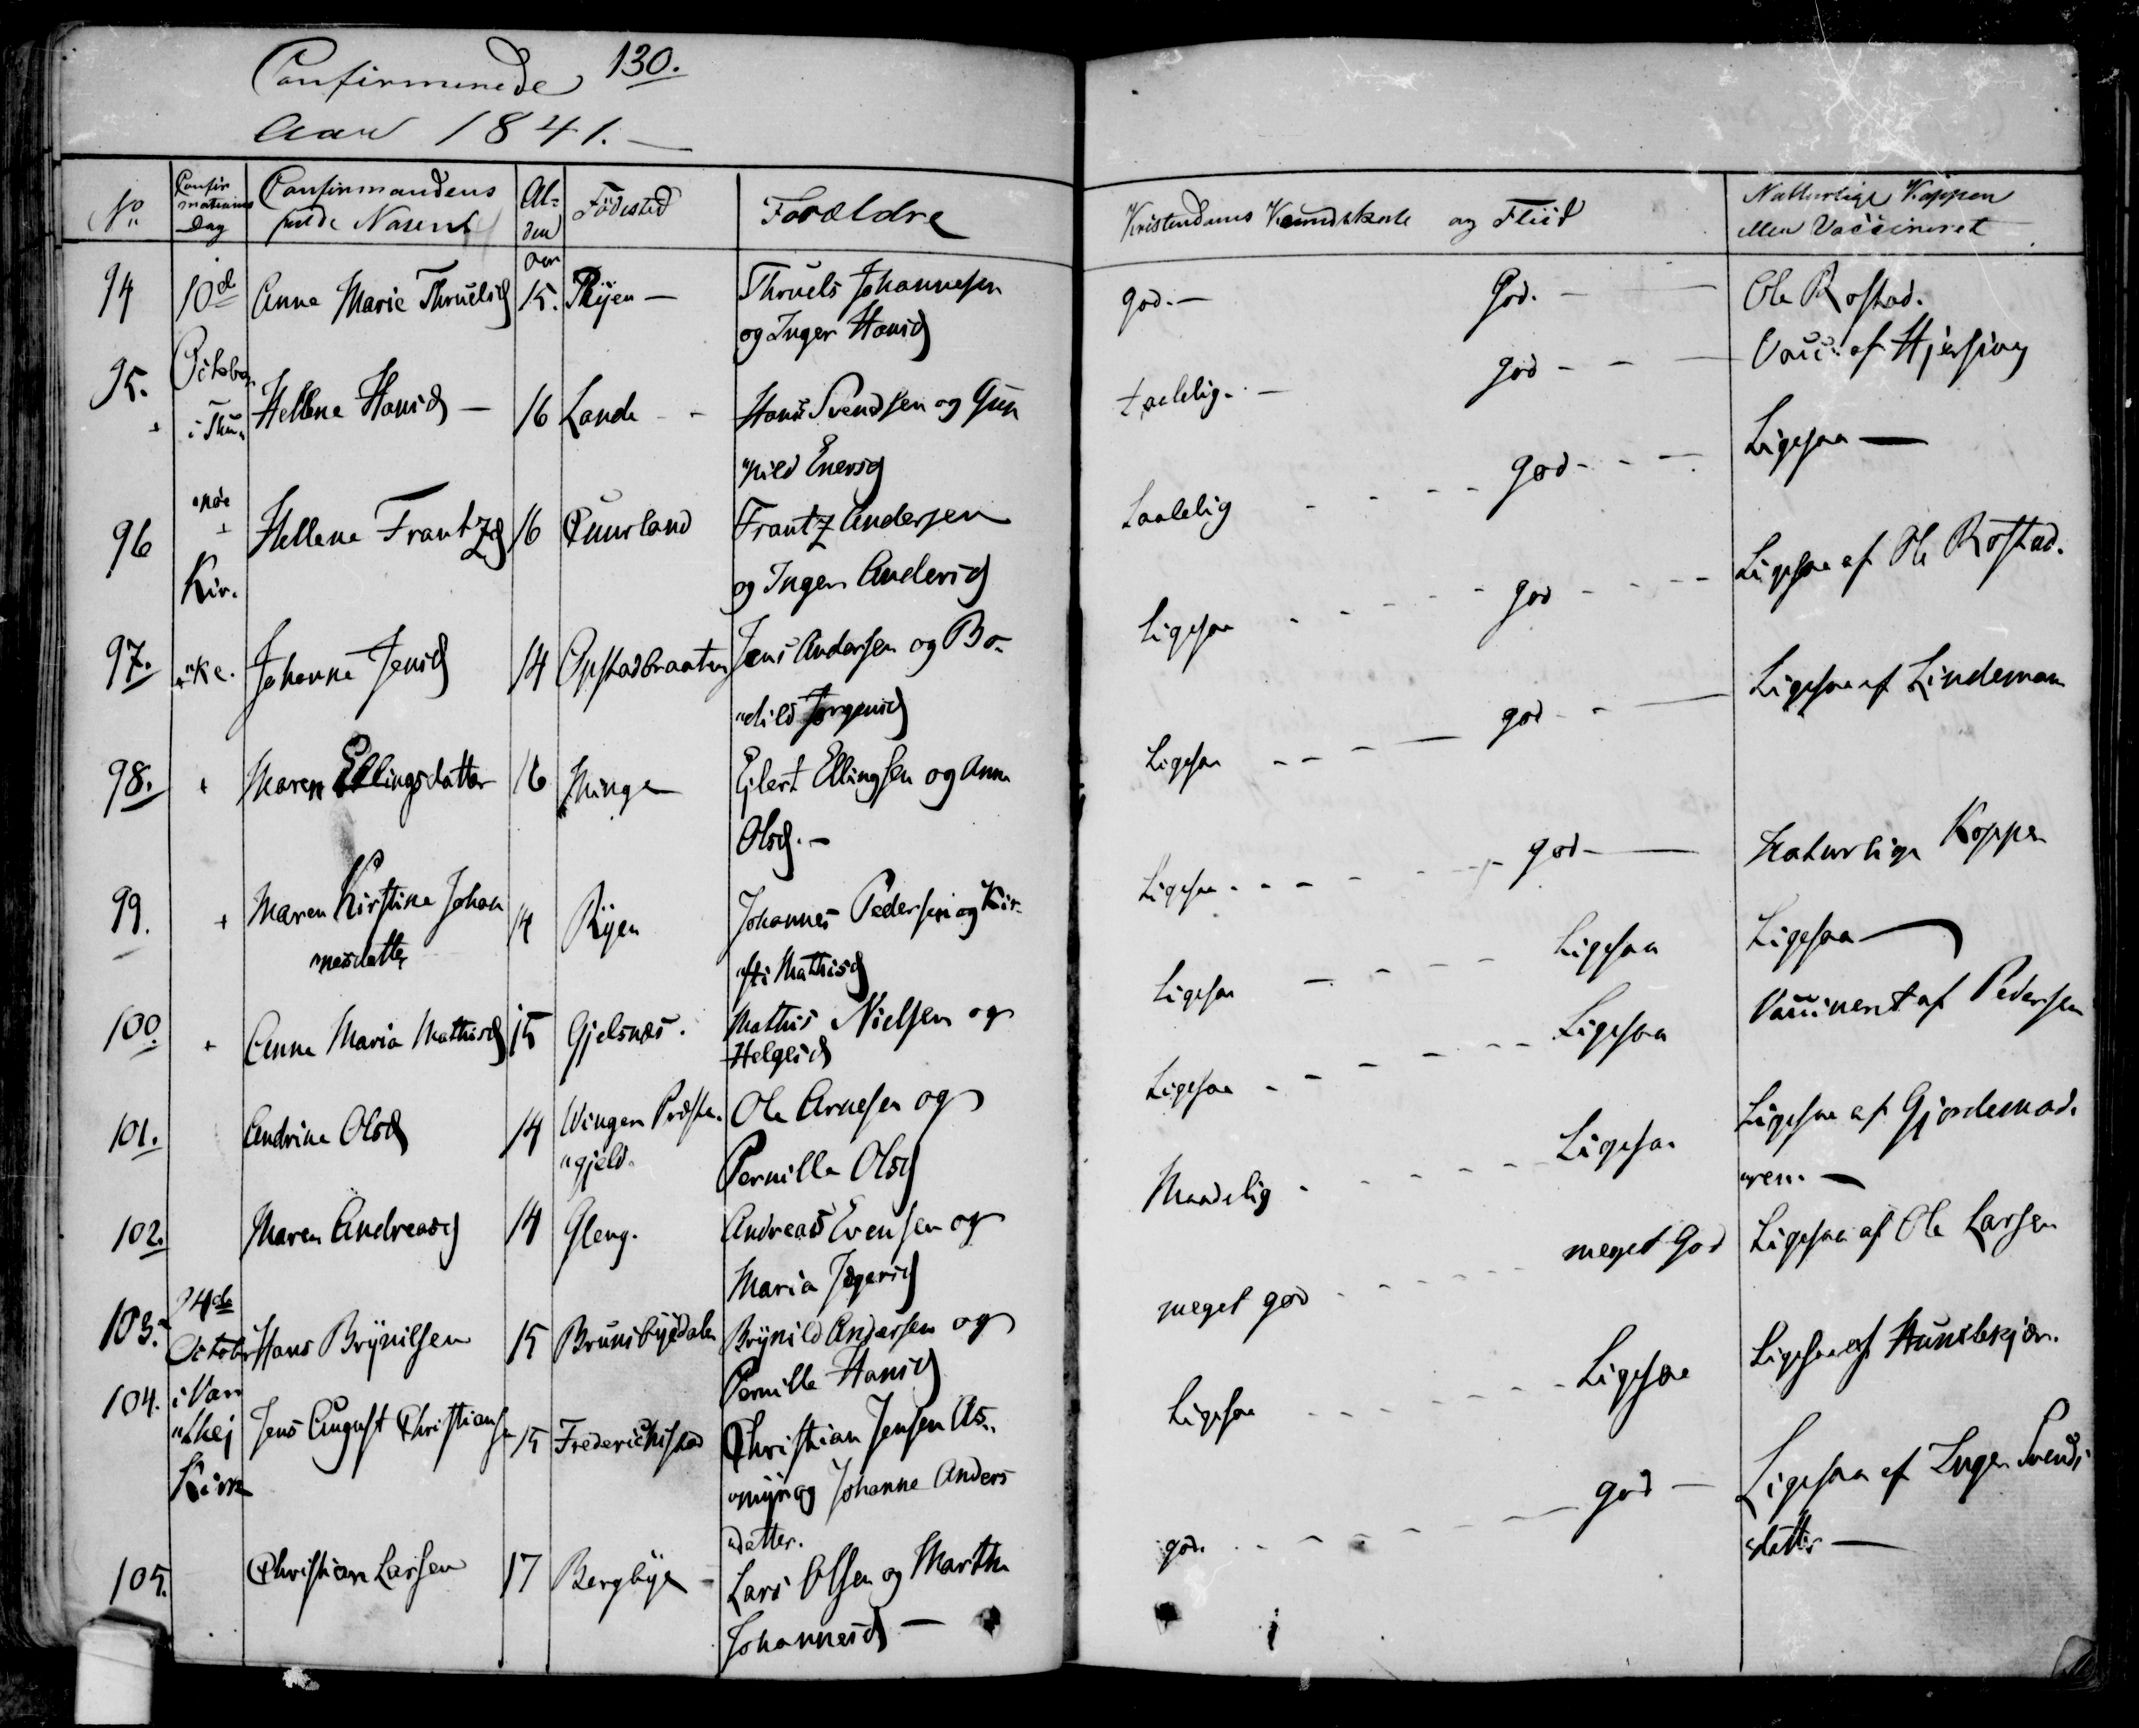 Confirmerede 130.
Aar 1841.
No
Confirmations Dag
Confirmandens fulde Navne
Alder
Födested
Forældre
Kristendoms Kundskab og Fliid
Naturlige Kopper eller Vaccineret
Aar
94 10de Anne Marie Thruelsd 15. Ryen — Thruels Johannesen
og Inger Hansd
god. — God. — Ole Rostad.
95. October i Thu„ Hellene Hansd — 16 Lande Hans Svendsen og Gun
„nild Enersd
taalelig. — god — — Vacc: af Hjersing
96 „nöe Kir. Hellene Frantzd 16 Cuurland Frantz Andersen
og Inger Andersd
taalelig god — — Ligesaa —
97. „ke. Johanne Jensd 14 Opstadbraaten Jens Andersen og Bo„
„dild Jörgensd
Ligesaa god Ligesaa af Ole Rostad.
98. Maren Ellingsdatter 16 Minge Ejlert Ellingsen og Anne
Olsd. —
Ligesaa — god — Ligesaa af Lindeman
99. Maren Kirstine Johan 14 Ryen Johannes Pedersen og Kir„
nesdatter „sti Mathisd
Ligesaa god — Naturlige Kopper
100. Anne Maria Mathisd 15 Gjelsnæs. Mathis Nielsen og
Helgesd
Ligesaa Ligesaa Ligesaa —
101. Andrine Olsd 14 Winger Præste„ Ole Arnesen og
„gjeld. Pernille Olsd
Ligesaa Ligesaa Vaccineret af Pedersen
102. Maren Andreasd 14 Gleng. Andreas Evensen og
Maria Jegersd
Maadelig Ligesaa Ligesaa af Gjordemod.
„ren. —
103. 24de October Hans Brynilsen 15 Brunsbyedalen Brynild Andersen og
Pernille Hansd
meget god meget God Ligesaa af Ole Larsen
104. i Var„ „thej Kirke Jens August Christiansen 15 Frederichstad Christian Jensen As„
„myr og Johanne Anders
„datter.
Ligesaa Ligesaa Ligesaa af Hunslekjær.
105. Christian Larsen 17 Bergbye — Lars Olsen og Marthe
Johannesd —
god. god — Ligesaa af Inger Svends
datter —